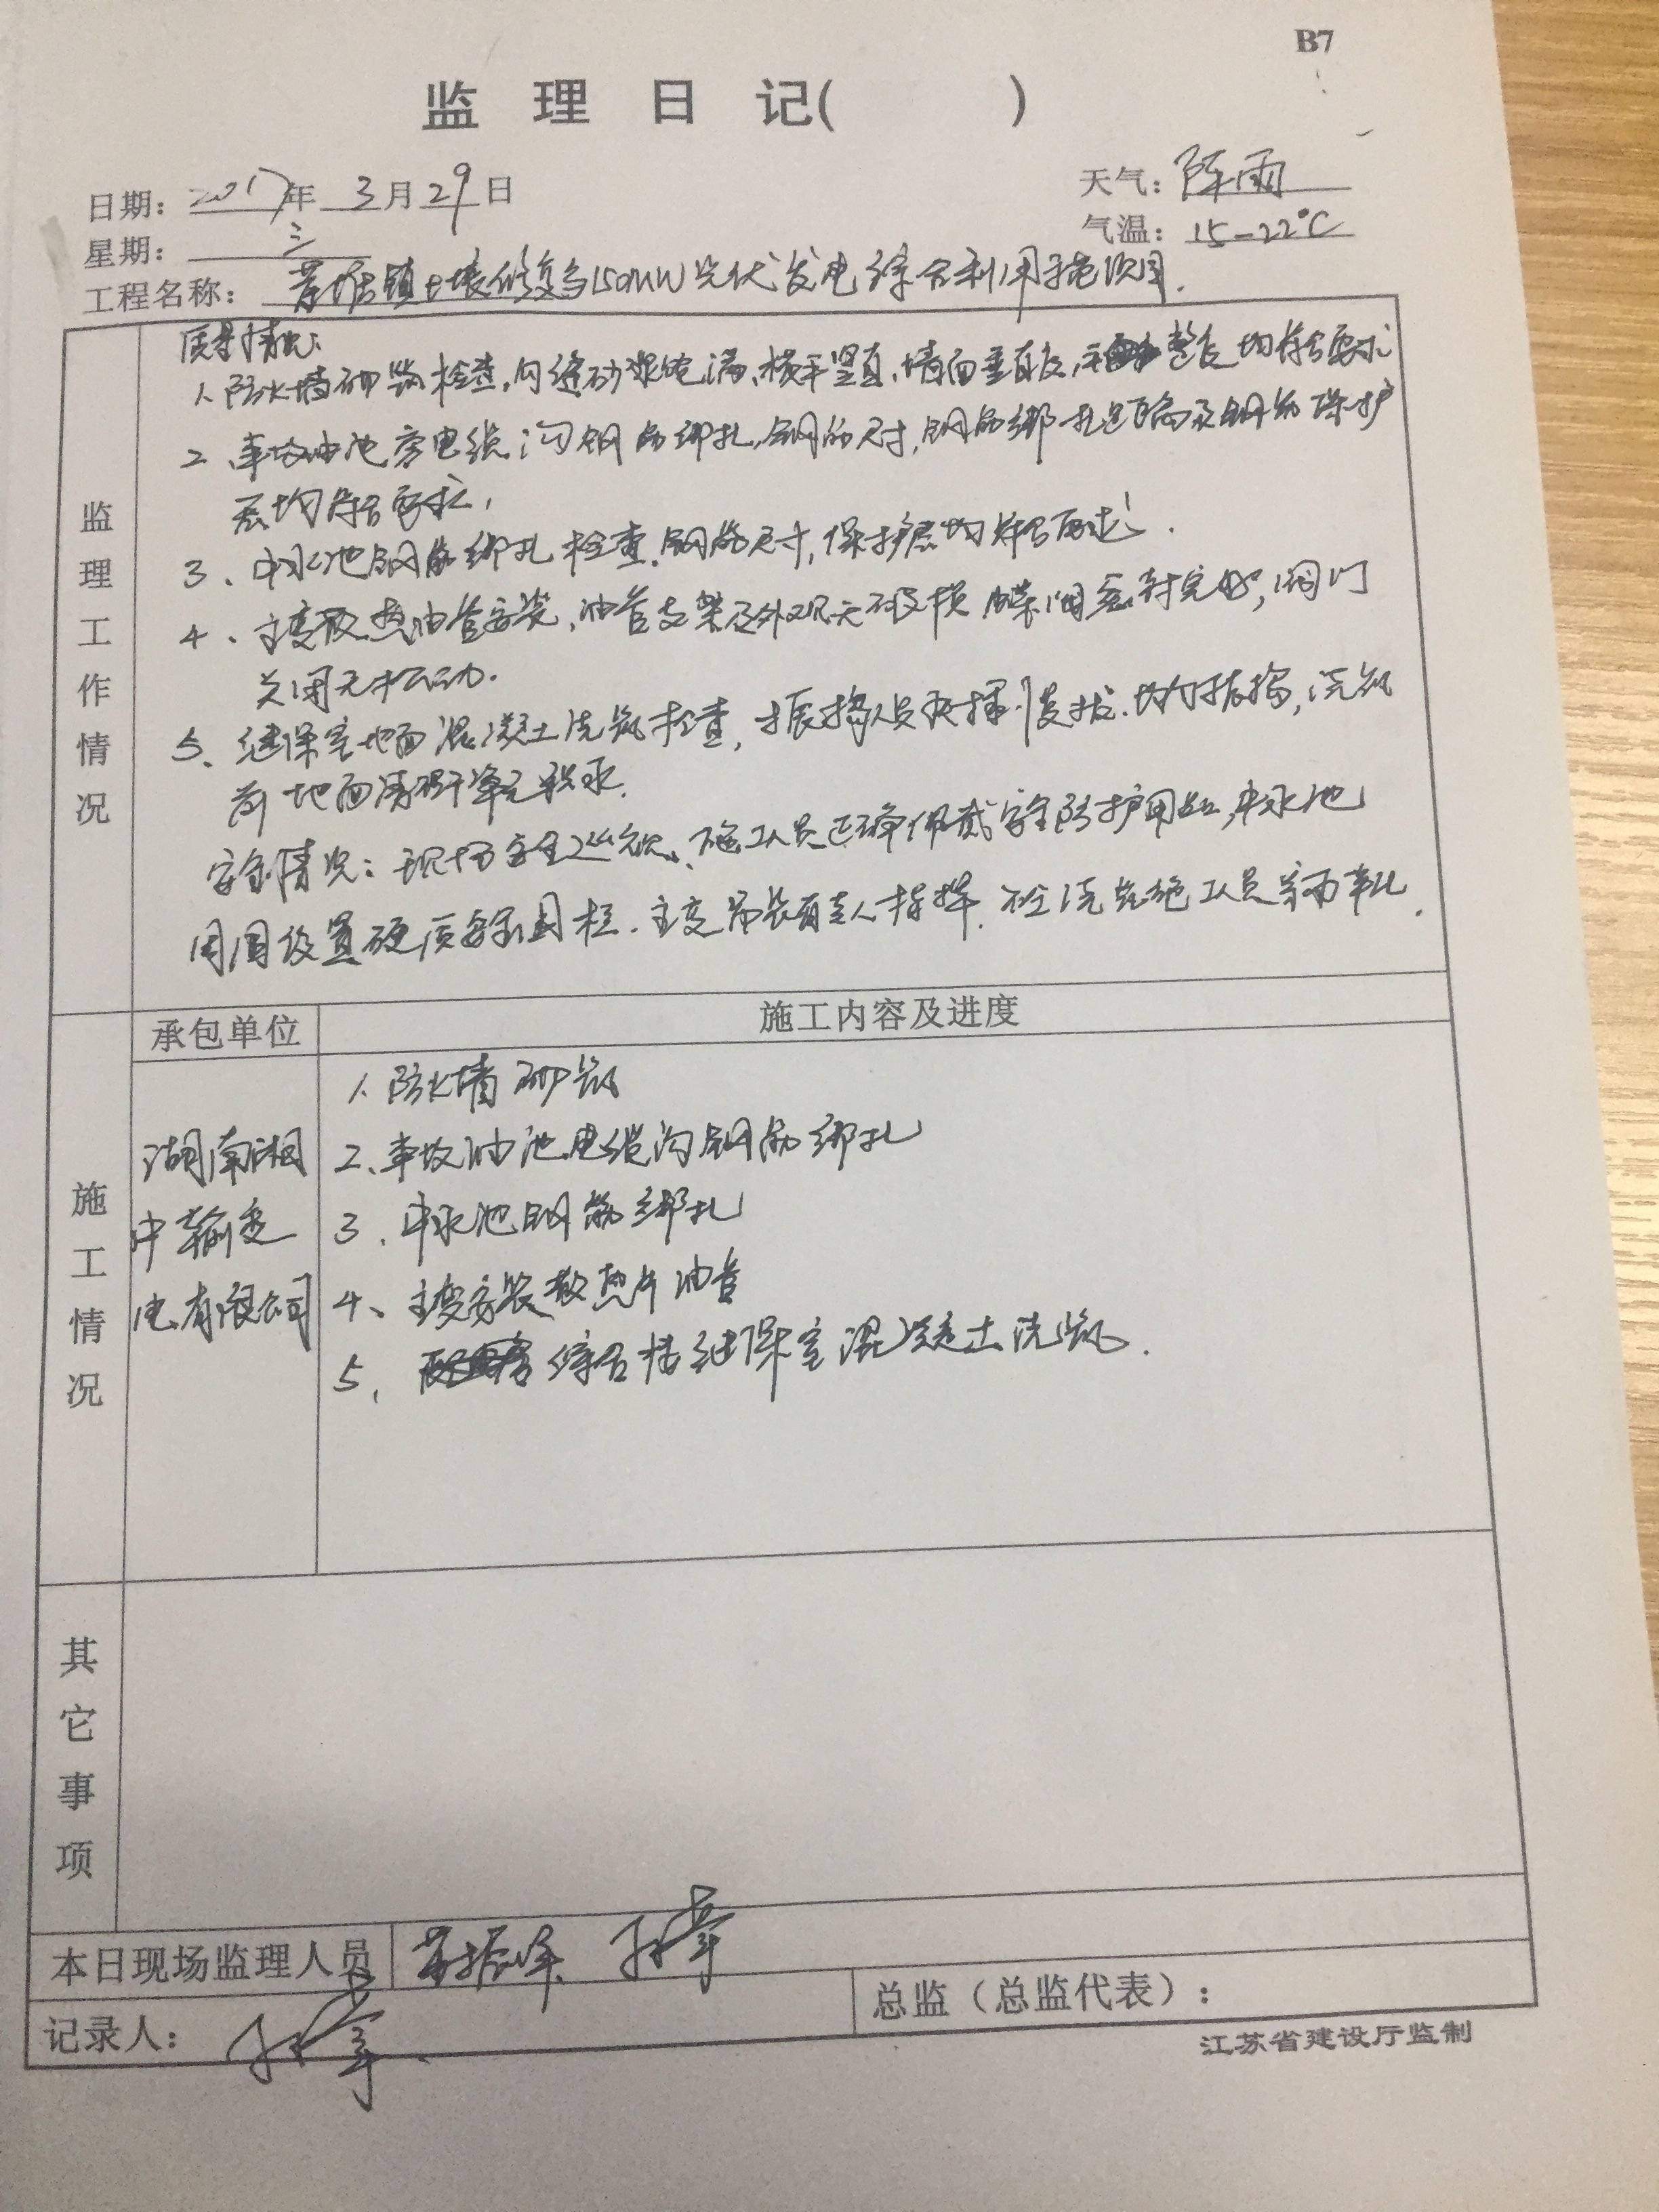 B7
监理日记( )
日期：2017年3月29日
天气：阵雨
星期：三
气温：15-22℃
工程名称：镇土壤修复与150MW光伏发电综合利用项目.
监理工作情况
质量情况:
1、防火墙砌筑检查,勾缝砂浆饱满、横平竖直、墙面垂直度、平整度均符合要求
2、事故油池旁电缆沟钢筋绑扎,钢筋尺寸,钢筋绑扎间隔及钢筋保护
层均符合要求,
3、中水池钢筋绑扎检查.钢筋尺寸,保护层均符合要求.
4、主变散热油管安装、油管支架及外观无破损,蝶阀密封完好,阀门
关闭无松动.
5、继保室地面混凝土浇筑检查,振捣人员快插慢拔.均匀振捣,浇筑
前地面清理干净无积水.
安全情况:现场安全巡视、施工人员正确佩戴安全防护用品,中水池
周围设置硬质安全围栏.主变吊装有专人指挥.砼浇筑施工人员穿雨靴.
施工情况
承包单位
施工内容及进度
湖南湘
中输变
电有限公司
1、防火墙砌筑
2、事故油池电缆沟钢筋绑扎
3、中水池钢筋绑扎
4、主变安装散热片油管
5、综合楼继保室混凝土浇筑.
其它事项
本日现场监理人员
记录人：
总监（总监代表）：
江苏省建设厅监制